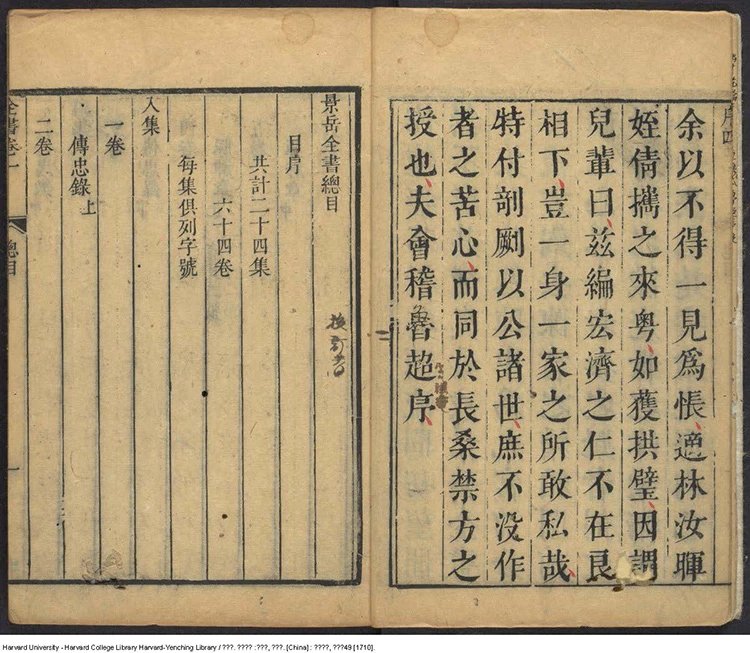 余以不得一見爲悵適林汝暉
姪倩攜之來粤如獲拱璧因謂
兒輩曰茲編宏濟之仁不在良
相下豈一身一家之所敢私哉
特付剞劂以公諸世庶不沒作
者之苦心而同於長桑禁方之
授也夫會稽魯超序
景岳全書總目
目序
共計二十四集
六十四卷
每集俱列字號
入集
一卷
傳忠錄上
二卷
全書卷一
總目
一
Harvard University - Harvard College Library Harvard-Yenching Library / ???. ???? :???, ???. [China] : ????, ???49 [1710].